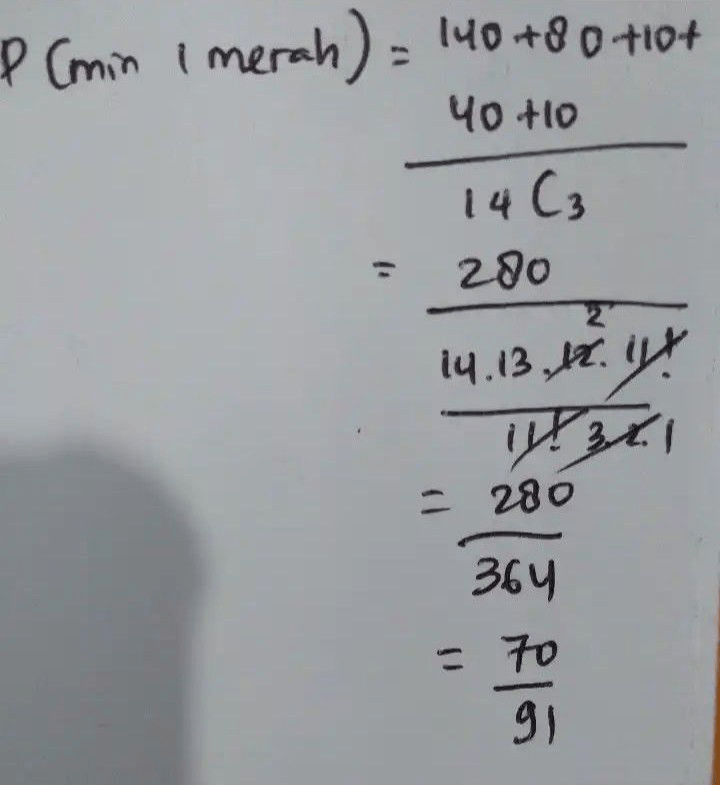 P (min 1 merah) = 140 + 80 + 10 +
40 + 10
14 C 3
= 280
2
14 . 13 . 12 . 11 !
11 ! 3 . 2 . 1
= 280
364
= 70
91